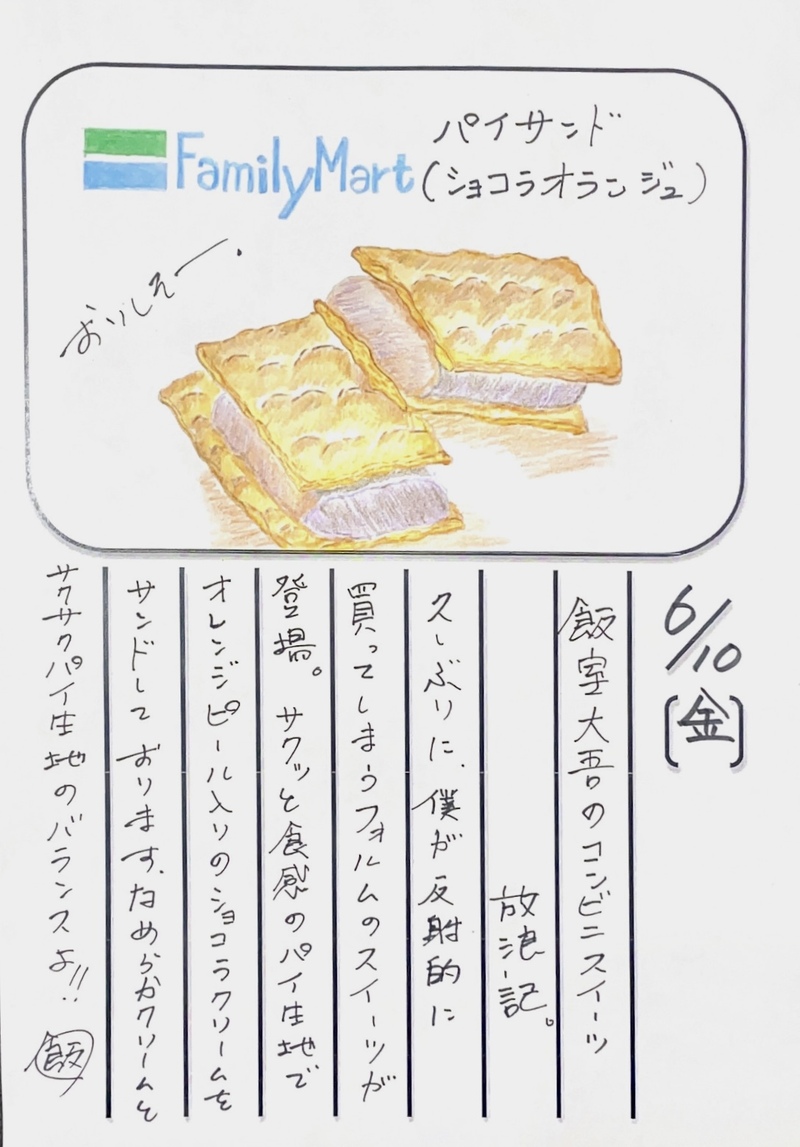 FamilyMart
パイサンド
(ショコラオランジュ)
おいしそー。
6/10
[金]
飯室大吾のコンビニスイーツ
放浪記。
久しぶりに、僕が反射的に
買ってしまうフォルムのスイーツが
登場。サクッと食感のパイ生地で
オレンジピール入りのショコラクリームを
サンドしております。なめらかクリームと
サクサクパイ生地のバランスよ!!
飯